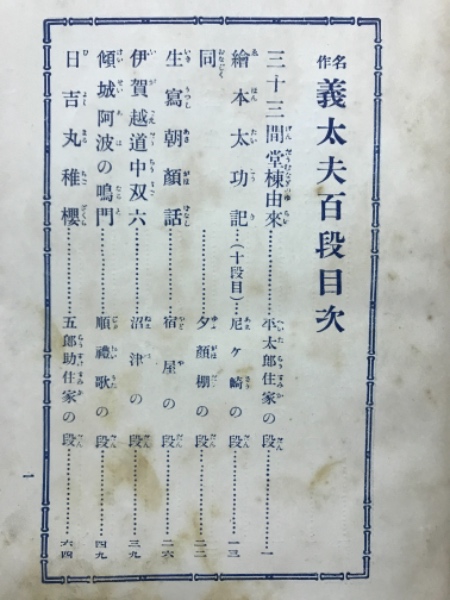 名作 義太夫百段目次
三十三間堂棟由來………平太郎住家の段………一
繪本太功記…(十段目)…尼ヶ崎の段………一三
同………夕顏棚の段………二二
生寫朝顏話………宿屋の段………二六
伊賀越道中双六………沼津の段………三九
傾城阿波の鳴門………順禮歌の段………四九
日吉丸稚櫻………五郎助住家の段………六四
一